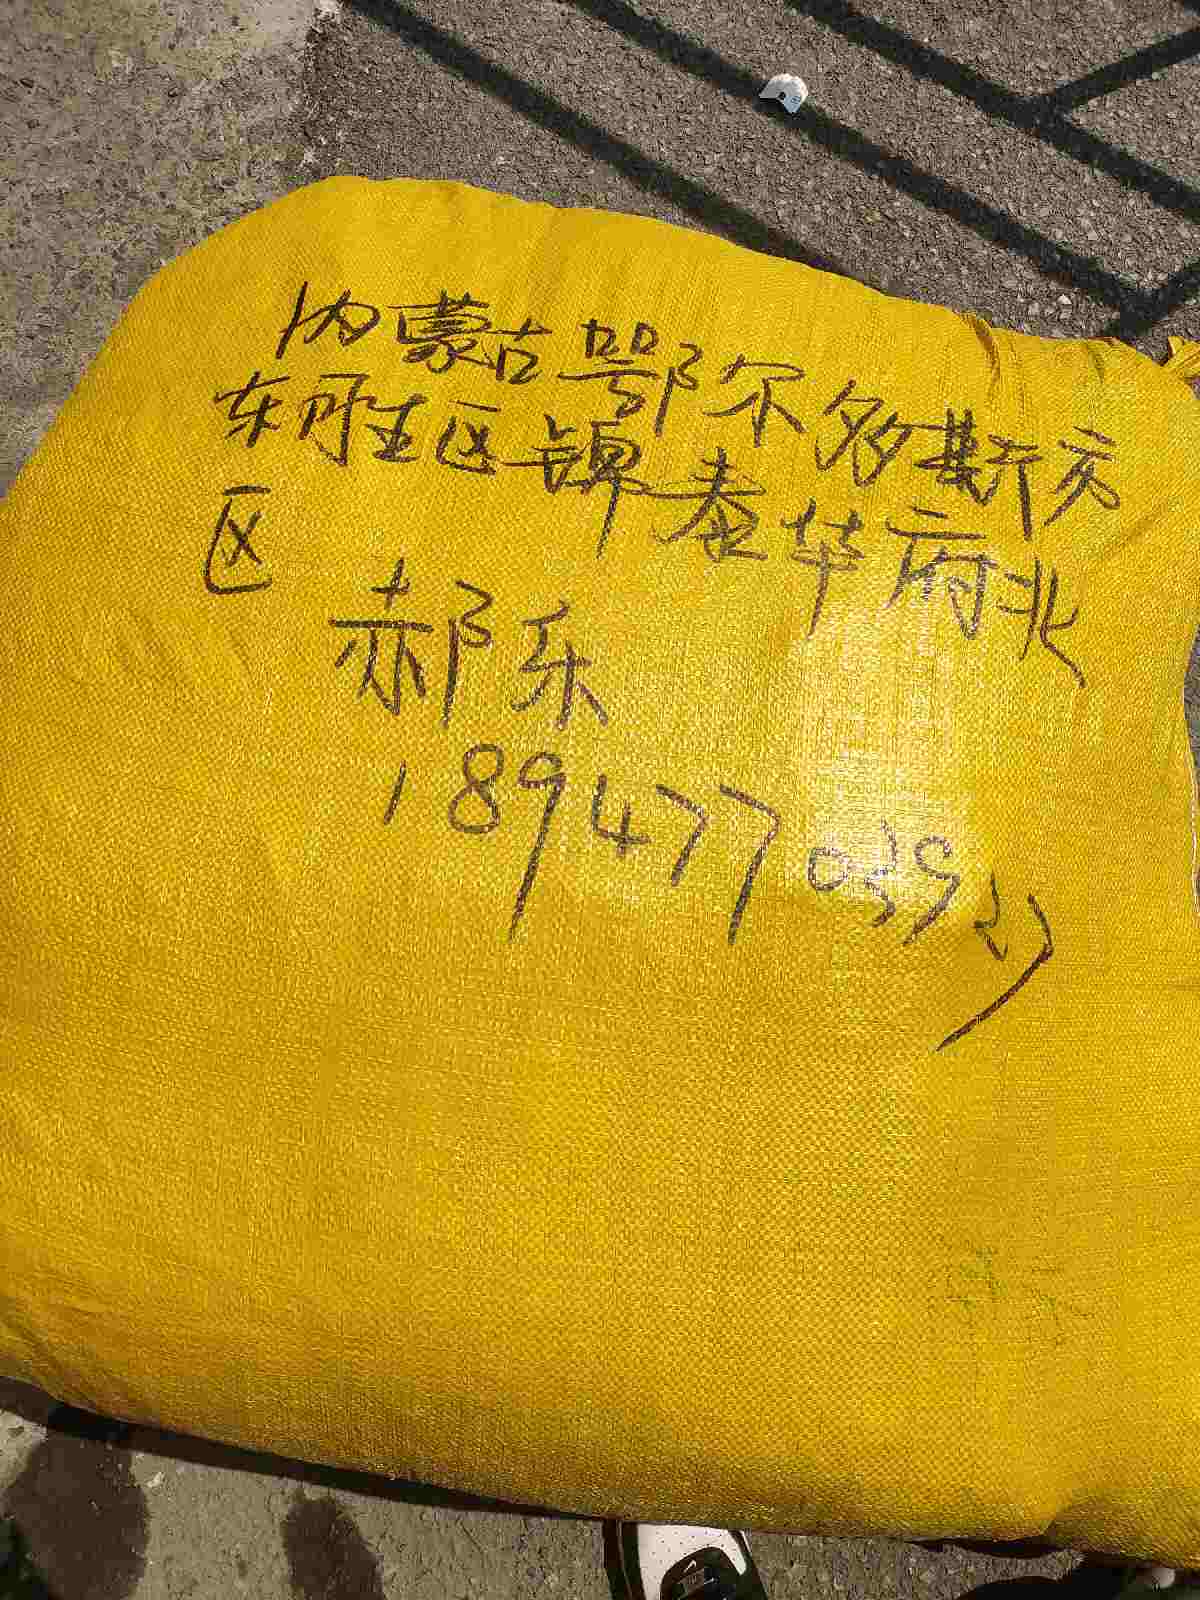 内蒙古鄂尔多斯市
东胜区锦泰华府北
区
郝乐
189477039